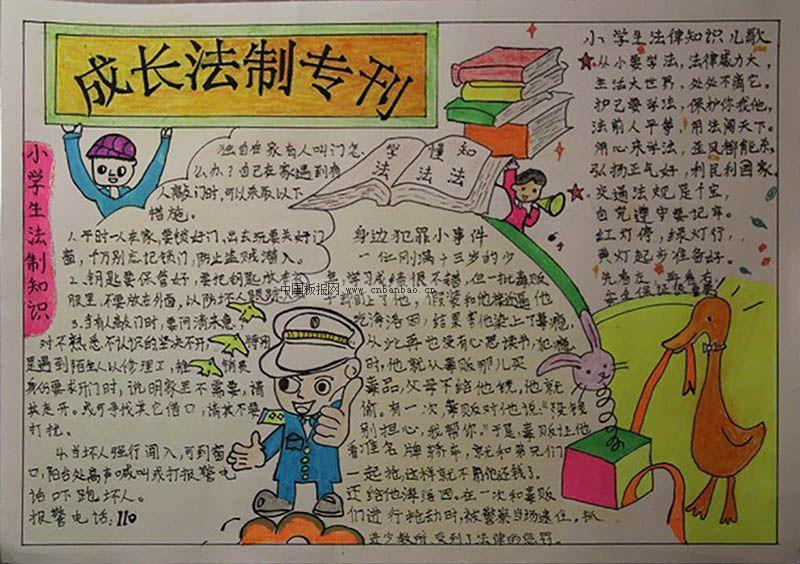 成长法制专刊
小学生法制知识
独自在家有人叫门怎
么办？自己在家遇到有
人敲门时，可以采取以下
措施。
1.平时一人在家，要锁好门，出去玩要关好门
窗，千万别忘记锁门，防止盗贼潜入。
2.钥匙要保管好，要把钥匙放在
服里，不要放在外面，以防坏人跟踪
3.当有人敲门时，要问清来意，
对不熟悉不认识的坚决不开，
是遇到陌生人以修理工，推销员
身份要求开门时，说明家里不需要，请
其走开。或可寻找其它借口，请其不要
打扰。
4.当坏人强行闯入，可到窗
口，阳台处高声喊叫或打报警电
话吓跑坏人。
报警电话：110
学法
懂法
知法
身边犯罪小事件
一位刚满十三岁的少
年，学习成绩很不错，但一批毒贩
子盯上了他，假装和他接近，骗他
吃海洛因，结果害他染上了毒瘾，
从此再也没有心思读书，犯瘾
时，他就从毒贩那儿买
毒品，父母不给他钱，他就
偷。有一次，毒贩对他说：“没钱
别担心，我帮你。”于是，毒贩让他
看准名牌轿车，就和弟兄们
一起抢，这样就不用他还钱了，
还给他海洛因。在一次和毒贩
们进行抢劫时，被警察当场逮住，抓
进少教所，受到了法律的惩罚。
小学生法律知识儿歌
从小要学法，法律威力大，
生活大世界，处处不离它。
护己要学法，保护你我他，
法前人平等，用法闯天下。
用心来学法，歪风都能杀，
弘扬正气好，利民利国家。
交通法规是个宝，
自觉遵守要记牢。
红灯停，绿灯行，
黄灯起步准备好。
中国板报网
www.cnbanbao.cn